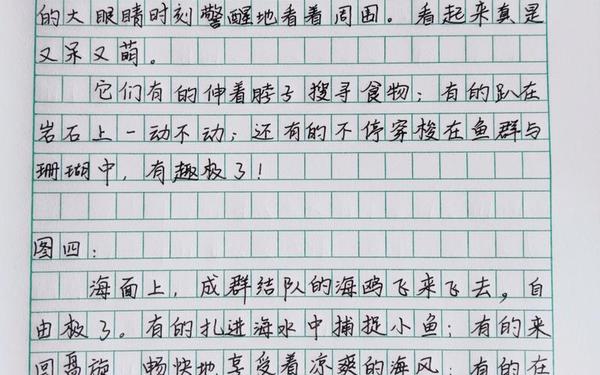 的大眼睛时刻警醒地看着周围。看起来真是
又呆又萌。
它们有的伸着脖子搜寻食物；有的趴在
岩石上一动不动；还有的不停穿梭在鱼群与
珊瑚中，有趣极了！
图四：
海面上，成群结队的海鸥飞来飞去，自
由极了。有的扎进海水中捕捉小鱼；有的来
回盘旋，畅快地享受着凉爽的海风；有的在